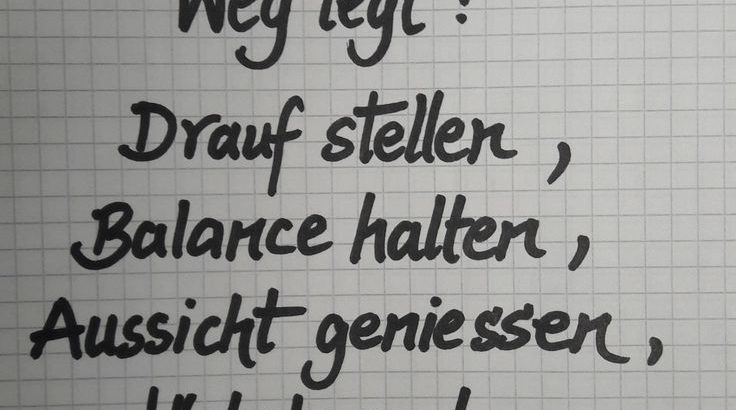 Weg legt :
Drauf stellen ,
Balance halten ,
Aussicht geniessen ,